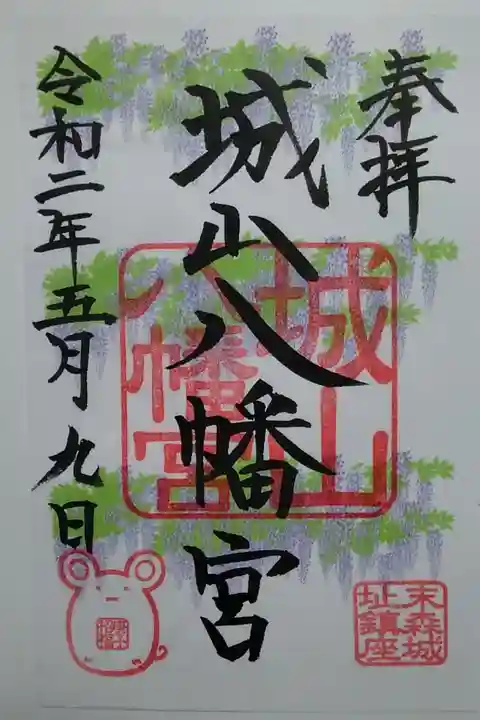 奉拝
城山八幡宮
令和二年五月九日
城山
八幡宮
末森城
址鎮座